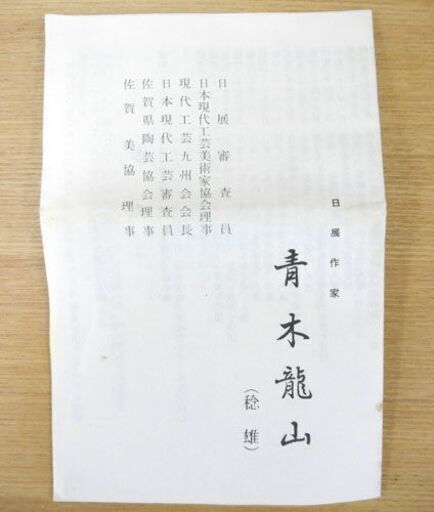 日展作家
青木龍山
（稔雄）
日展審査員
日本現代工芸美術家協会理事
現代工芸九州会会長
日本現代工芸審査員
佐賀県陶芸協会理事
佐賀美協理事